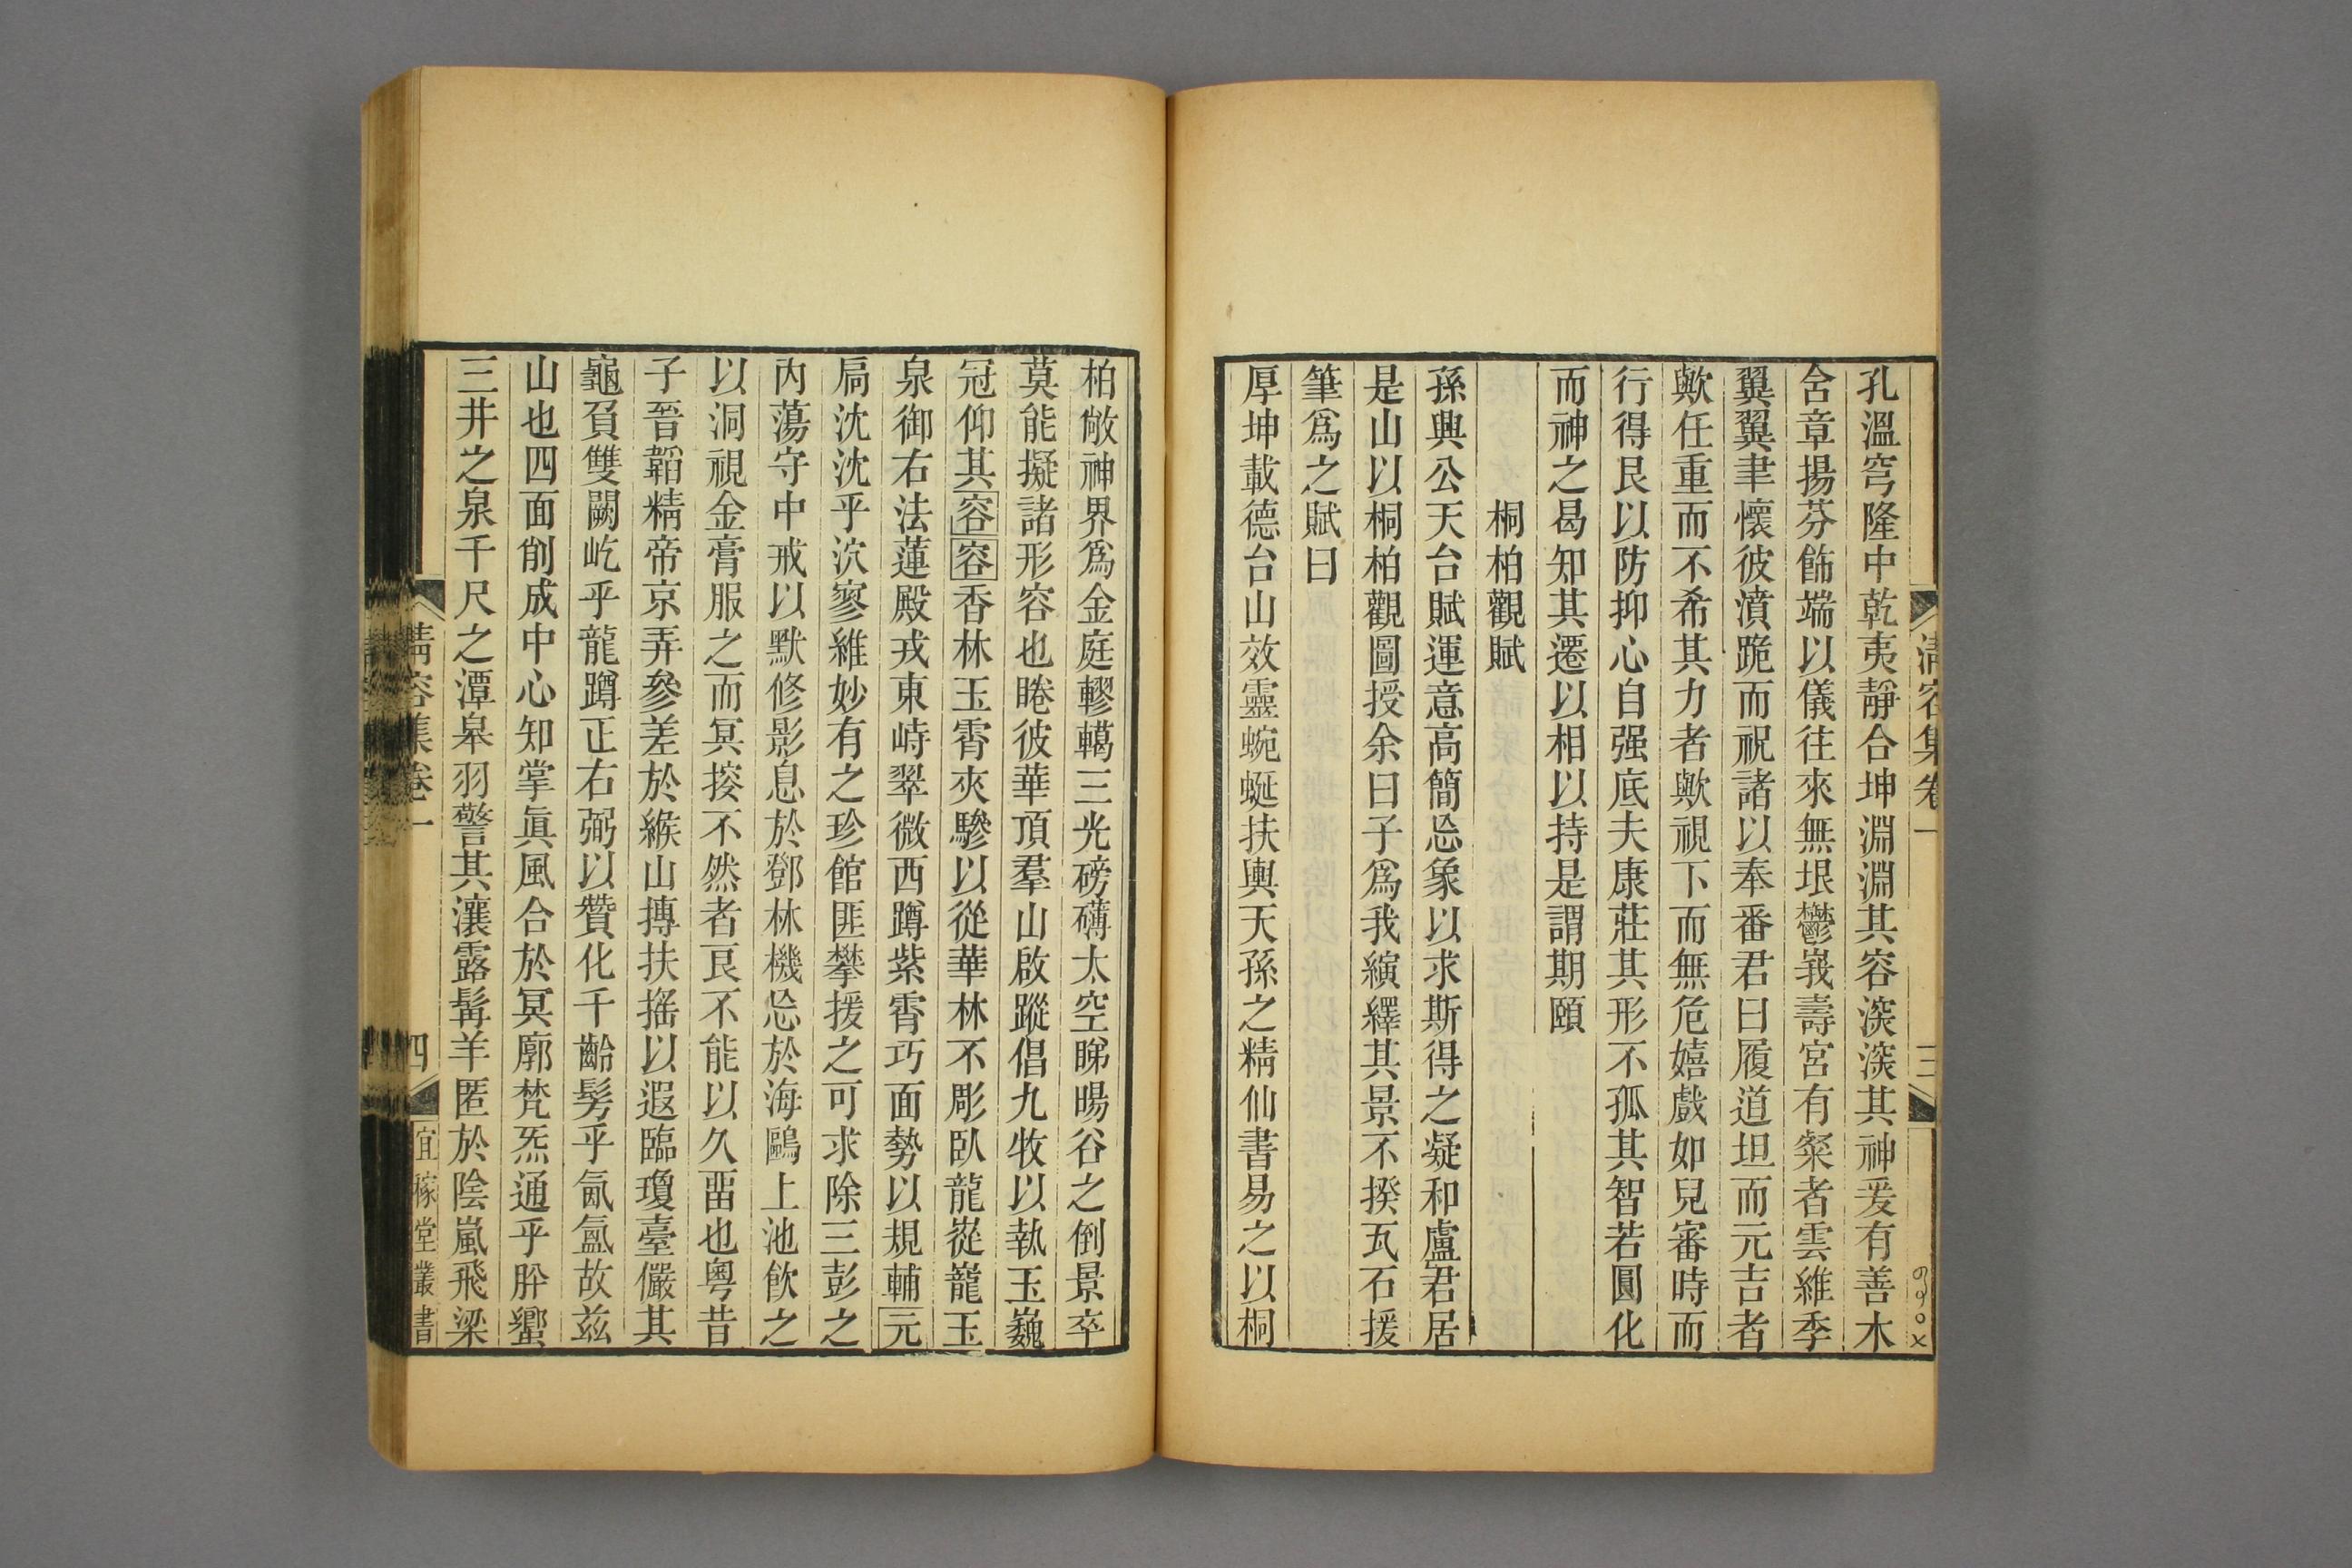 清容集卷一
三
孔溫穹隆中乾夷靜合坤淵淵其容深深其神爰有善木
含章揚芬飾端以儀往來無垠鬱峩壽宮有粲者雲維季
翼翼聿懷彼濆跪而祝諸以奉番君曰履道坦而元吉者
歟任重而不希其力者歟視下而無危嬉戲如兒審時而
行得艮以防抑心自强底夫康莊其形不孤其智若圓化
而神之曷知其遷以相以持是謂期頤
桐柏觀賦
孫興公天台賦運意高簡忘象以求斯得之凝和盧君居
是山以桐柏觀圖授余曰子爲我縯繹其景不揆瓦石援
筆爲之賦曰
厚坤載德台山效靈蜿蜒扶輿天孫之精仙書易之以桐
柏敞神界爲金庭轇轕三光磅礴太空睇暘谷之倒景卒
莫能擬諸形容也睠彼華頂羣山啟蹤倡九牧以執玉巍
冠仰其容容香林玉霄夾驂以從華林不彫臥龍嵸巃玉
泉御右法蓮殿戎東峙翠微西蹲紫霄巧面勢以規輔元
扃沈沈乎泬寥維妙有之珍館匪攀援之可求除三彭之
內蕩守中戒以默修影息於鄧林機忘於海鷗上池飲之
以洞視金膏服之而冥接不然者艮不能以久畱也粤昔
子晉韜精帝京弄參差於緱山摶扶搖以遐臨瓊臺儼其
龜負雙闕屹乎龍蹲正右弼以贊化千齡髣乎氤氳故兹
山也四面削成中心知掌眞風合於冥廓梵炁通乎肸蠁
三井之泉千尺之潭皋羽警其瀼露髯羊匿於陰嵐飛梁
清容集卷一
四
宜稼堂叢書